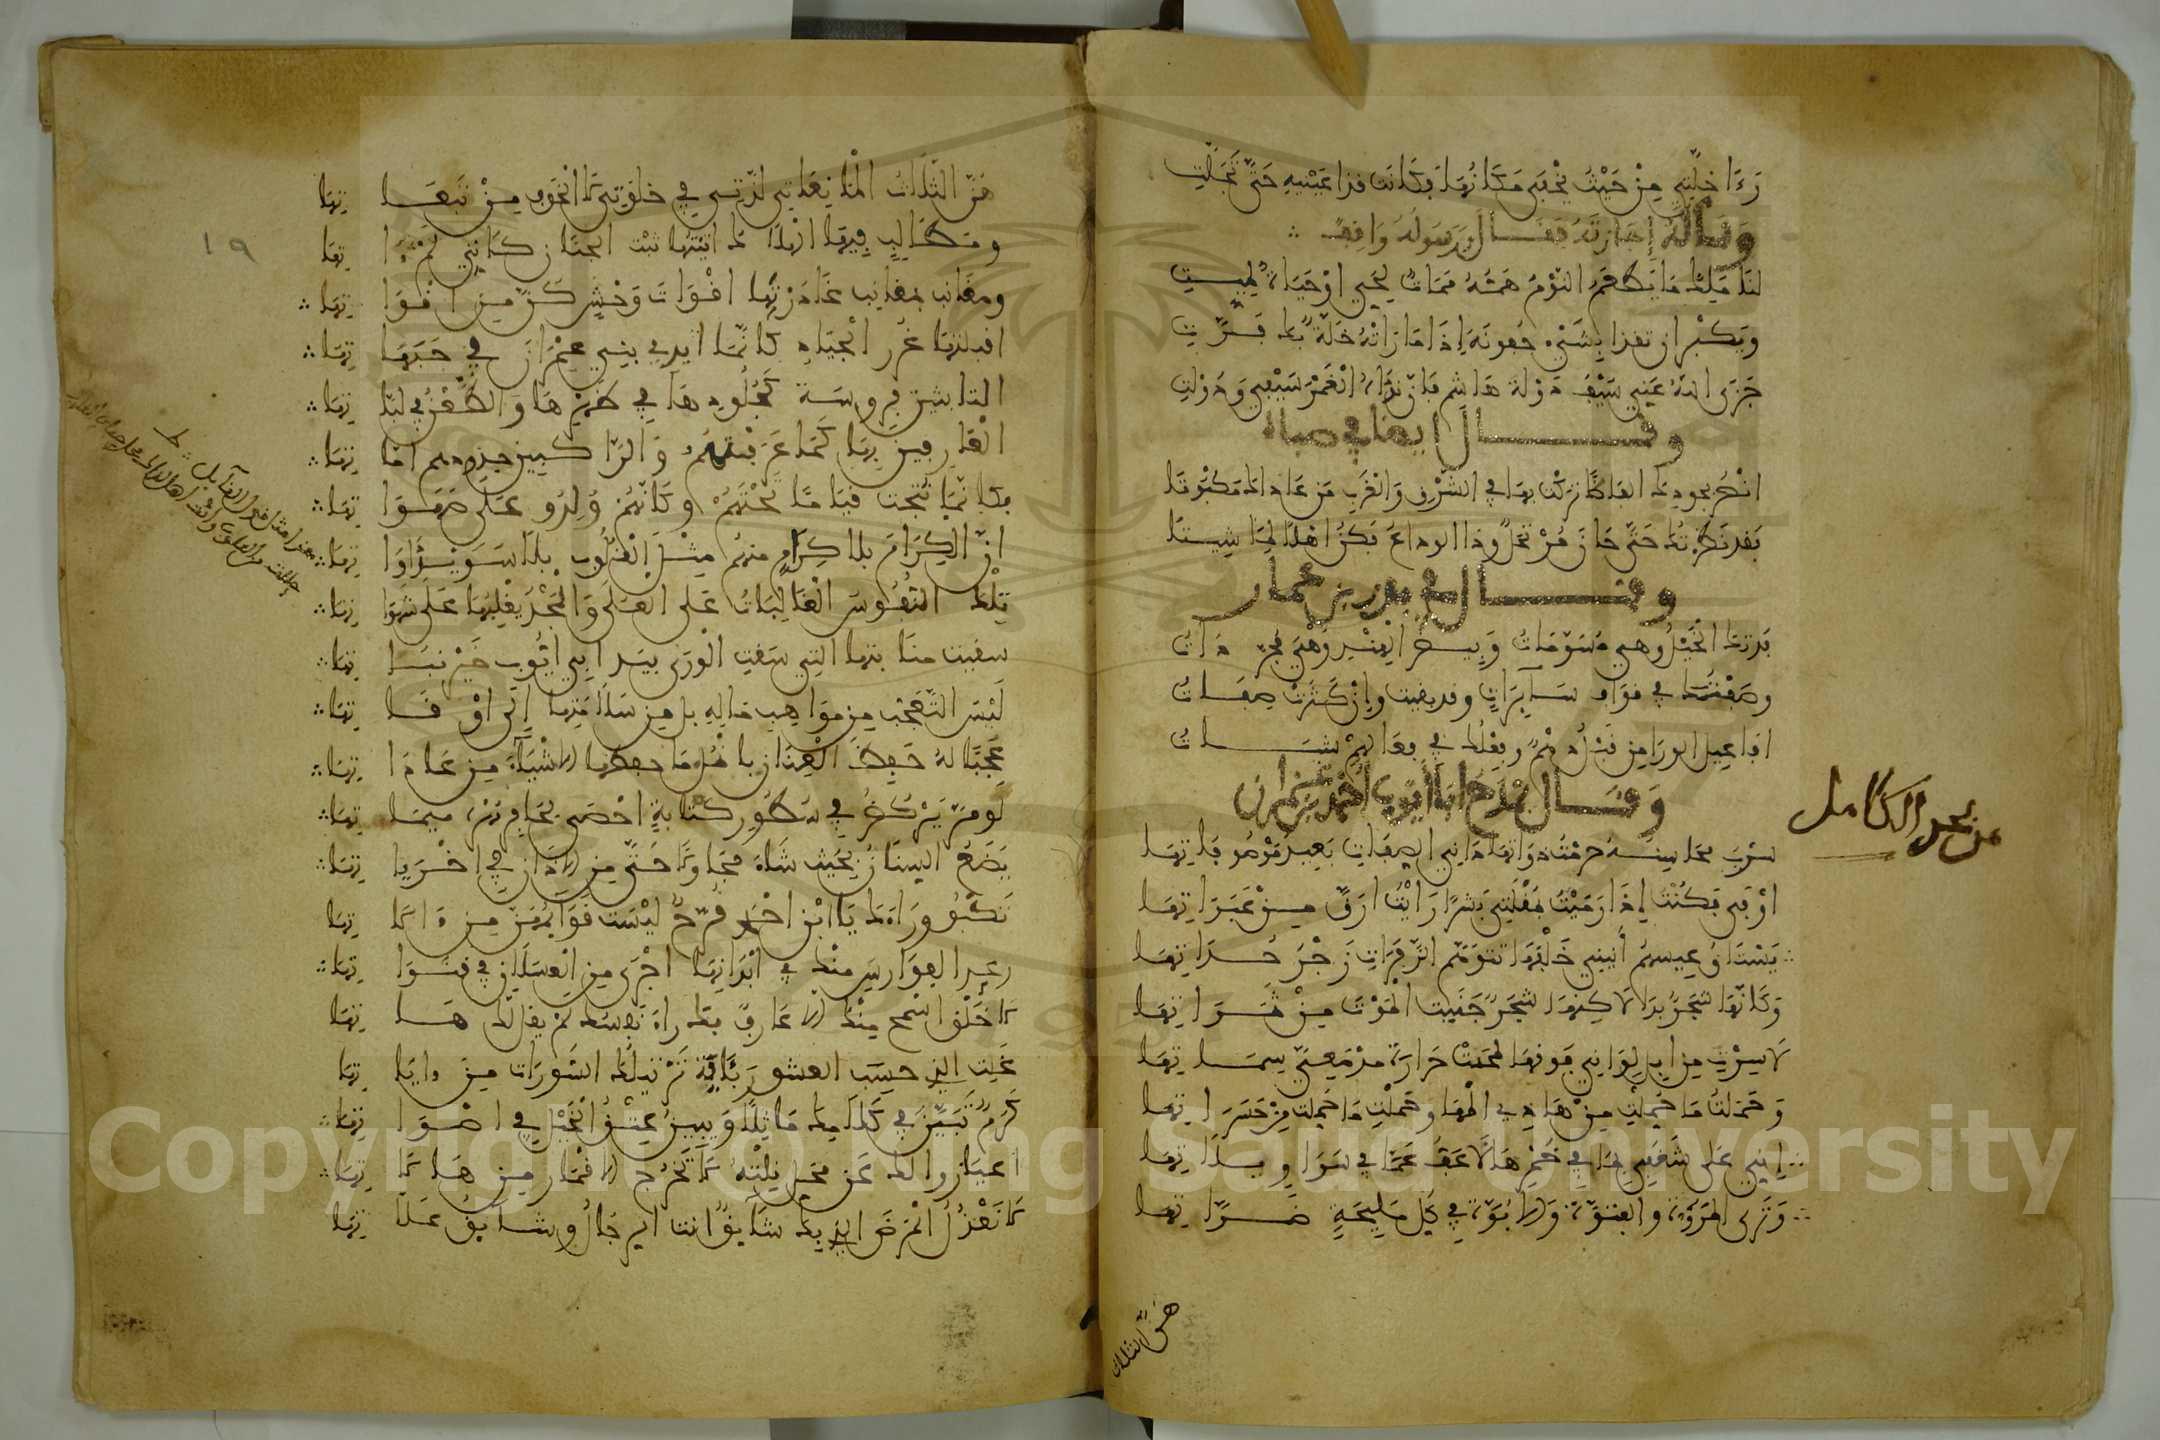 رَءَا خلّتي مِنْ حَيْثُ يخْفَى مَكانُهَا فكَانَت قذا عَيْنيهِ حَتَّى تَجَلّتِ
وسأله إجازته فقال ورسوله واقف
لنَا مَلِكٌ مَا يَطْعَمُ النّوْمَ هَمُّهُ مَمَاتٌ لِحَيٍ اوْ حَيَاةٌ لِمَيِّتِ
وَيَكبُر ان تقذا بِشَيْءٍ جُفونُه إذَا مَا رَأتْهُ خَلّةٌ بِكَ فَرّتِ
جَزَى اللهُ عَنِي سَيْفَ دَوْلة هَاشِمٍ فَإنّ نَدَاهُ الغَمْرَ سَيْفِي وَدَوْلَتِ
وقال ايضا في صباه
انْصُرْ بجودك الفاظًا تركْتُ بهَا في الشّرْقِ وَالغَرْبِ مَن عَاداكَ مَكبُوتَا
فقد نَظَرْتُك حَتَّى حَان مُرْتحَلٌ وذا الوداعُ فكُنْ أهْلاً لِمَا شِيتَا
وقال في بدر بن عمار
فَدتكَ الخَيْلُ وهي مُسَوّمَاتُ وَبِيضُ الهِنْدِ وَهْيَ مُجَرّدَاتُ
وصَفْتُكَ في قوافٍ سَايِرَاتٍ وقد بقيت وإنْ كَثُرَتْ صِفَاتُ
افاعِيل الورا مِن قبْلُ دُهْمٌ وفِعْلُكَ في فِعَالِهِمْ شِيَاتُ
وَقال يمْدَح ابَا أيّوب احْمَد بن عمران
من بحر الكامل
سِرْبٌ محَاسِنُهُ حرمْتُ ذوَاتِهَا دَانِي الصِفَاتِ بَعِيدُ مَوْصُوفَاتِهَا
اوْفَى فكُنْتُ إذَا رَمَيْتُ بمُقْلَتِي بَشَرًا رَايْتُ ارَقّ مِنْ عَبَرَاتِهَا
يَسْتَاقُ عِيسَهُمُ أنِينِي خَلْفَهَا تتَوَهّمُ الزّفَرَاتِ زَجْرَ حُدَاتِهَا
وَكَانّهَا شَجَرٌ بَدَا لاكِنّهَا شَجَرٌ جَنَيتُ المَوْتَ مِنْ ثَمَرَاتِهَا
لاَ سِرْتِ مِن ابِلٍ لوَانِي فَوقهَا لمحَتْ حَرَارَةُ مدْمَعَيَّ سِمَاتِهَا
وَحَمَلْتُ مَا حُمِلْتِ مِنْ هَاذِي المَهَا وحَمَلْتِ مَا حُمِلتُ مِنْ حَسَرَاتِهَا
إنِي عَلى شَغَفِي بمَا فِي خُمْرِهَا لاَعَفُّ عَمَّا في سَرَاوِيلاَتِهَا
وَتَرَى المرُوّةَ والفتوّةَ وَالابُوّةَ فِي كُلّ مَلِيحَةٍ ضَرّاتِهَا
هنّ الثلاث
هُنّ الثّلاَثُ المانِعَاتِي لذّتِي في خلوَتي لا الخَوْفُ مِنْ تَبِعَاتِهَا
ومَطَالِبٍ فِيهَا الهَلاكُ اتيْتُهَا ثبْتَ الجنَانِ كانّنِي لَمْ ءَاتِهَا
ومقَانِبٍ بمقَانِبٍ غَادَرْتُهَا اقْوَاتَ وَحْشٍ كُنّ مِن اقْوَاتِهَا
اقبلتهَا غُرَر الجِيَادِ كانّمَا ايدِي بنِي عِمْرَانَ فِي جَبَهَاتِهَا
الثابتين فروسَة كجُلُودِهَا فِي ظَهْرِهَا وَالطّعْنُ في لبّاتِهَا
العَارفِين بِهَا كَمَا عَرَفتْهُمُ وَالرّاكبِين جدودُهم امّاتِهَا
فكانّمَا نُتِجَت قيَامًا تحْتَهُمْ وكَانّهُمْ وُلِدُو عَلَى صَهَوَاتِهَا
انّ الكِرَامَ بلا كِرَامٍ منهُم مِثْلُ القُلُوب بِلا سُوَيْدَاوَاتِهَا
تِلْكَ النّفُوسُ الغَالِبَاتُ عَلى العُلَى وَالمَجْدُ يَغْلِبُهَا عَلَى شَهَوَاتِهَا
سقيت منَابتهَا التِي سَقَتِ الوَرَى بيَدِ ابِي ايّوب خَيْرِ نبَاتِهَا
لَيْسَ التّعَجّبُ مِن مَوَاهِبِ مَالِهِ بل مِن سَلاَمَتِهَا إلَى اوْقَاتِهَا
عَجَبًا لهُ حَفِظَ العِنَانَ بانْمُلٍ مَا حِفظهَا الاشْيَاءَ مِن عَادَاتِهَا
لَو مَرّ يَرْكُضُ فِي سُطُورِ كتابةٍ احْصَى بحَافِرِ مُهْرِهِ مِيمَاتِهَا
يَضَعُ السِنَانَ بحَيْث شَاءَ مجَاوِلاً حَتّى مِن الاذَانِ فِي اخْرَاتِهَا
تَكْبُو وَرَاءَكَ يَا ابْنَ احْمَد قُرّحٌ ليْسَت قَوَايمُهُنّ مِن ءَالاتِهَا
رعِدُ الفوَارِسِ مِنْكَ في ابْدَانِهَا اجْرَى مِن العَسَلانِ في قنَوَاتِهَا
لا خَلْق اسْمَح مِنْكَ الا عَارِفٌ بكَ رَاءَ نَفْسَكَ لَمْ يَقُل لَّكَ هَاتِهَا
غَلِت الذِي حسِبَ العشور بئَايةٍ تَرْتيلُكَ السّورَاتِ مِن ءايَاتِهَا
كَرَمٌ تَبَيّنَ فِي كَلاَمِكَ مَاثِلاً وَيَبِينُ عِتْقُ الخَيْلِ في اصْوَاتِهَا
اعيَا زوالك عَن محَلٍ نِلْتَهُ لا تخْرُجُ الاقْمَارُ مِن هَالاتِهَا
لا نَعْذُلُ المَرَضَ الذِي بِكَ شَايقٌ انتَ الرجَالَ وشَايقٌ عِلاّتِهَا
١٩